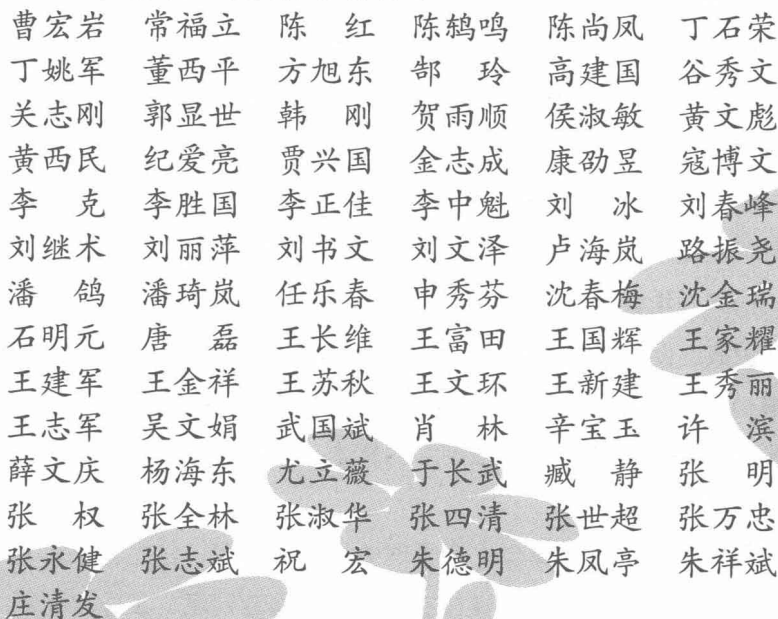 曹宏岩 常福立 陈 红 陈鸫鸣 陈尚凤 丁石荣
丁姚军 董西平 方旭东 郜 玲 高建国 谷秀文
关志刚 郭显世 韩 刚 贺雨顺 侯淑敏 黄文彪
黄西民 纪爱亮 贾兴国 金志成 康劭昱 寇博文
李 克 李胜国 李正佳 李中魁 刘 冰 刘春峰
刘继术 刘丽萍 刘书文 刘文泽 卢海岚 路振尧
潘 鸽 潘琦岚 任乐春 申秀芬 沈春梅 沈金瑞
石明元 唐 磊 王长维 王富田 王国辉 王家耀
王建军 王金祥 王苏秋 王文环 王新建 王秀丽
王志军 吴文娟 武国斌 肖 林 辛宝玉 许 滨
薛文庆 杨海东 尤立薇 于长武 臧 静 张 明
张 权 张全林 张淑华 张四清 张世超 张万忠
张永健 张志斌 祝 宏 朱德明 朱凤亭 朱祥斌
庄清发